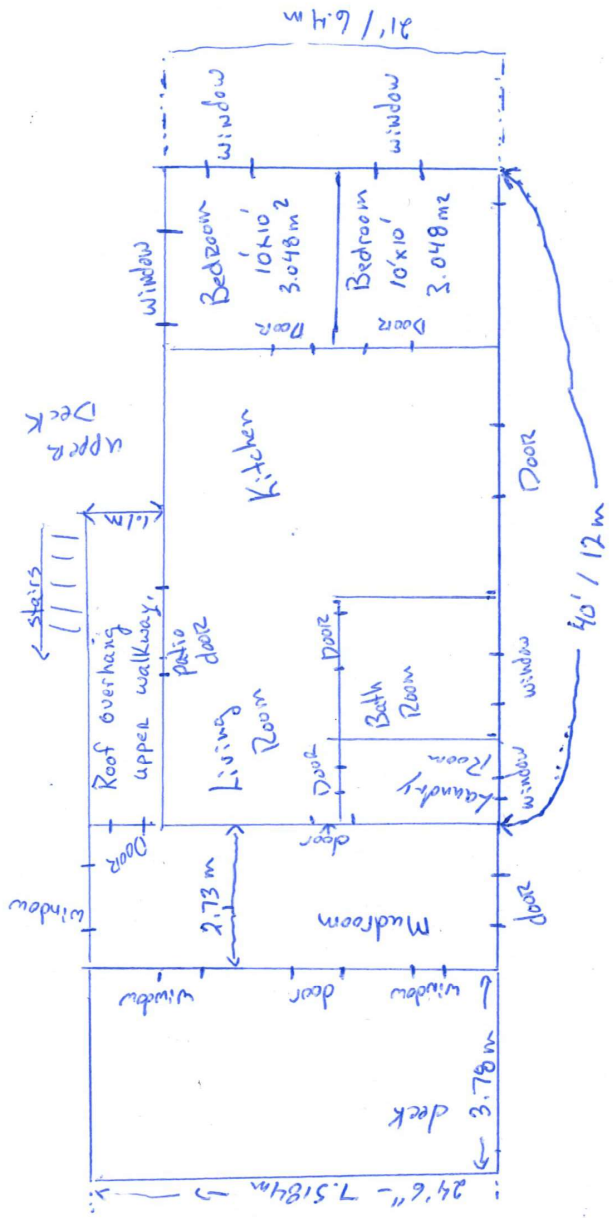 21' / 6.4 m
window
window
window
Bedroom
10'x10'
3.048m2
Bedroom
10'x10'
3.048m2
Door
Door
upper
Deck
Kitchen
Door
stairs
Roof overhang
upper walkway.
patio
door
Living
Room
Door
Bath
Room
Door
Laundry
Room
window
window
40' / 12 m
window
Door
door
2.73 m
Mudroom
door
window
door
window
deck
3.78 m
24'6" - 7.5184m